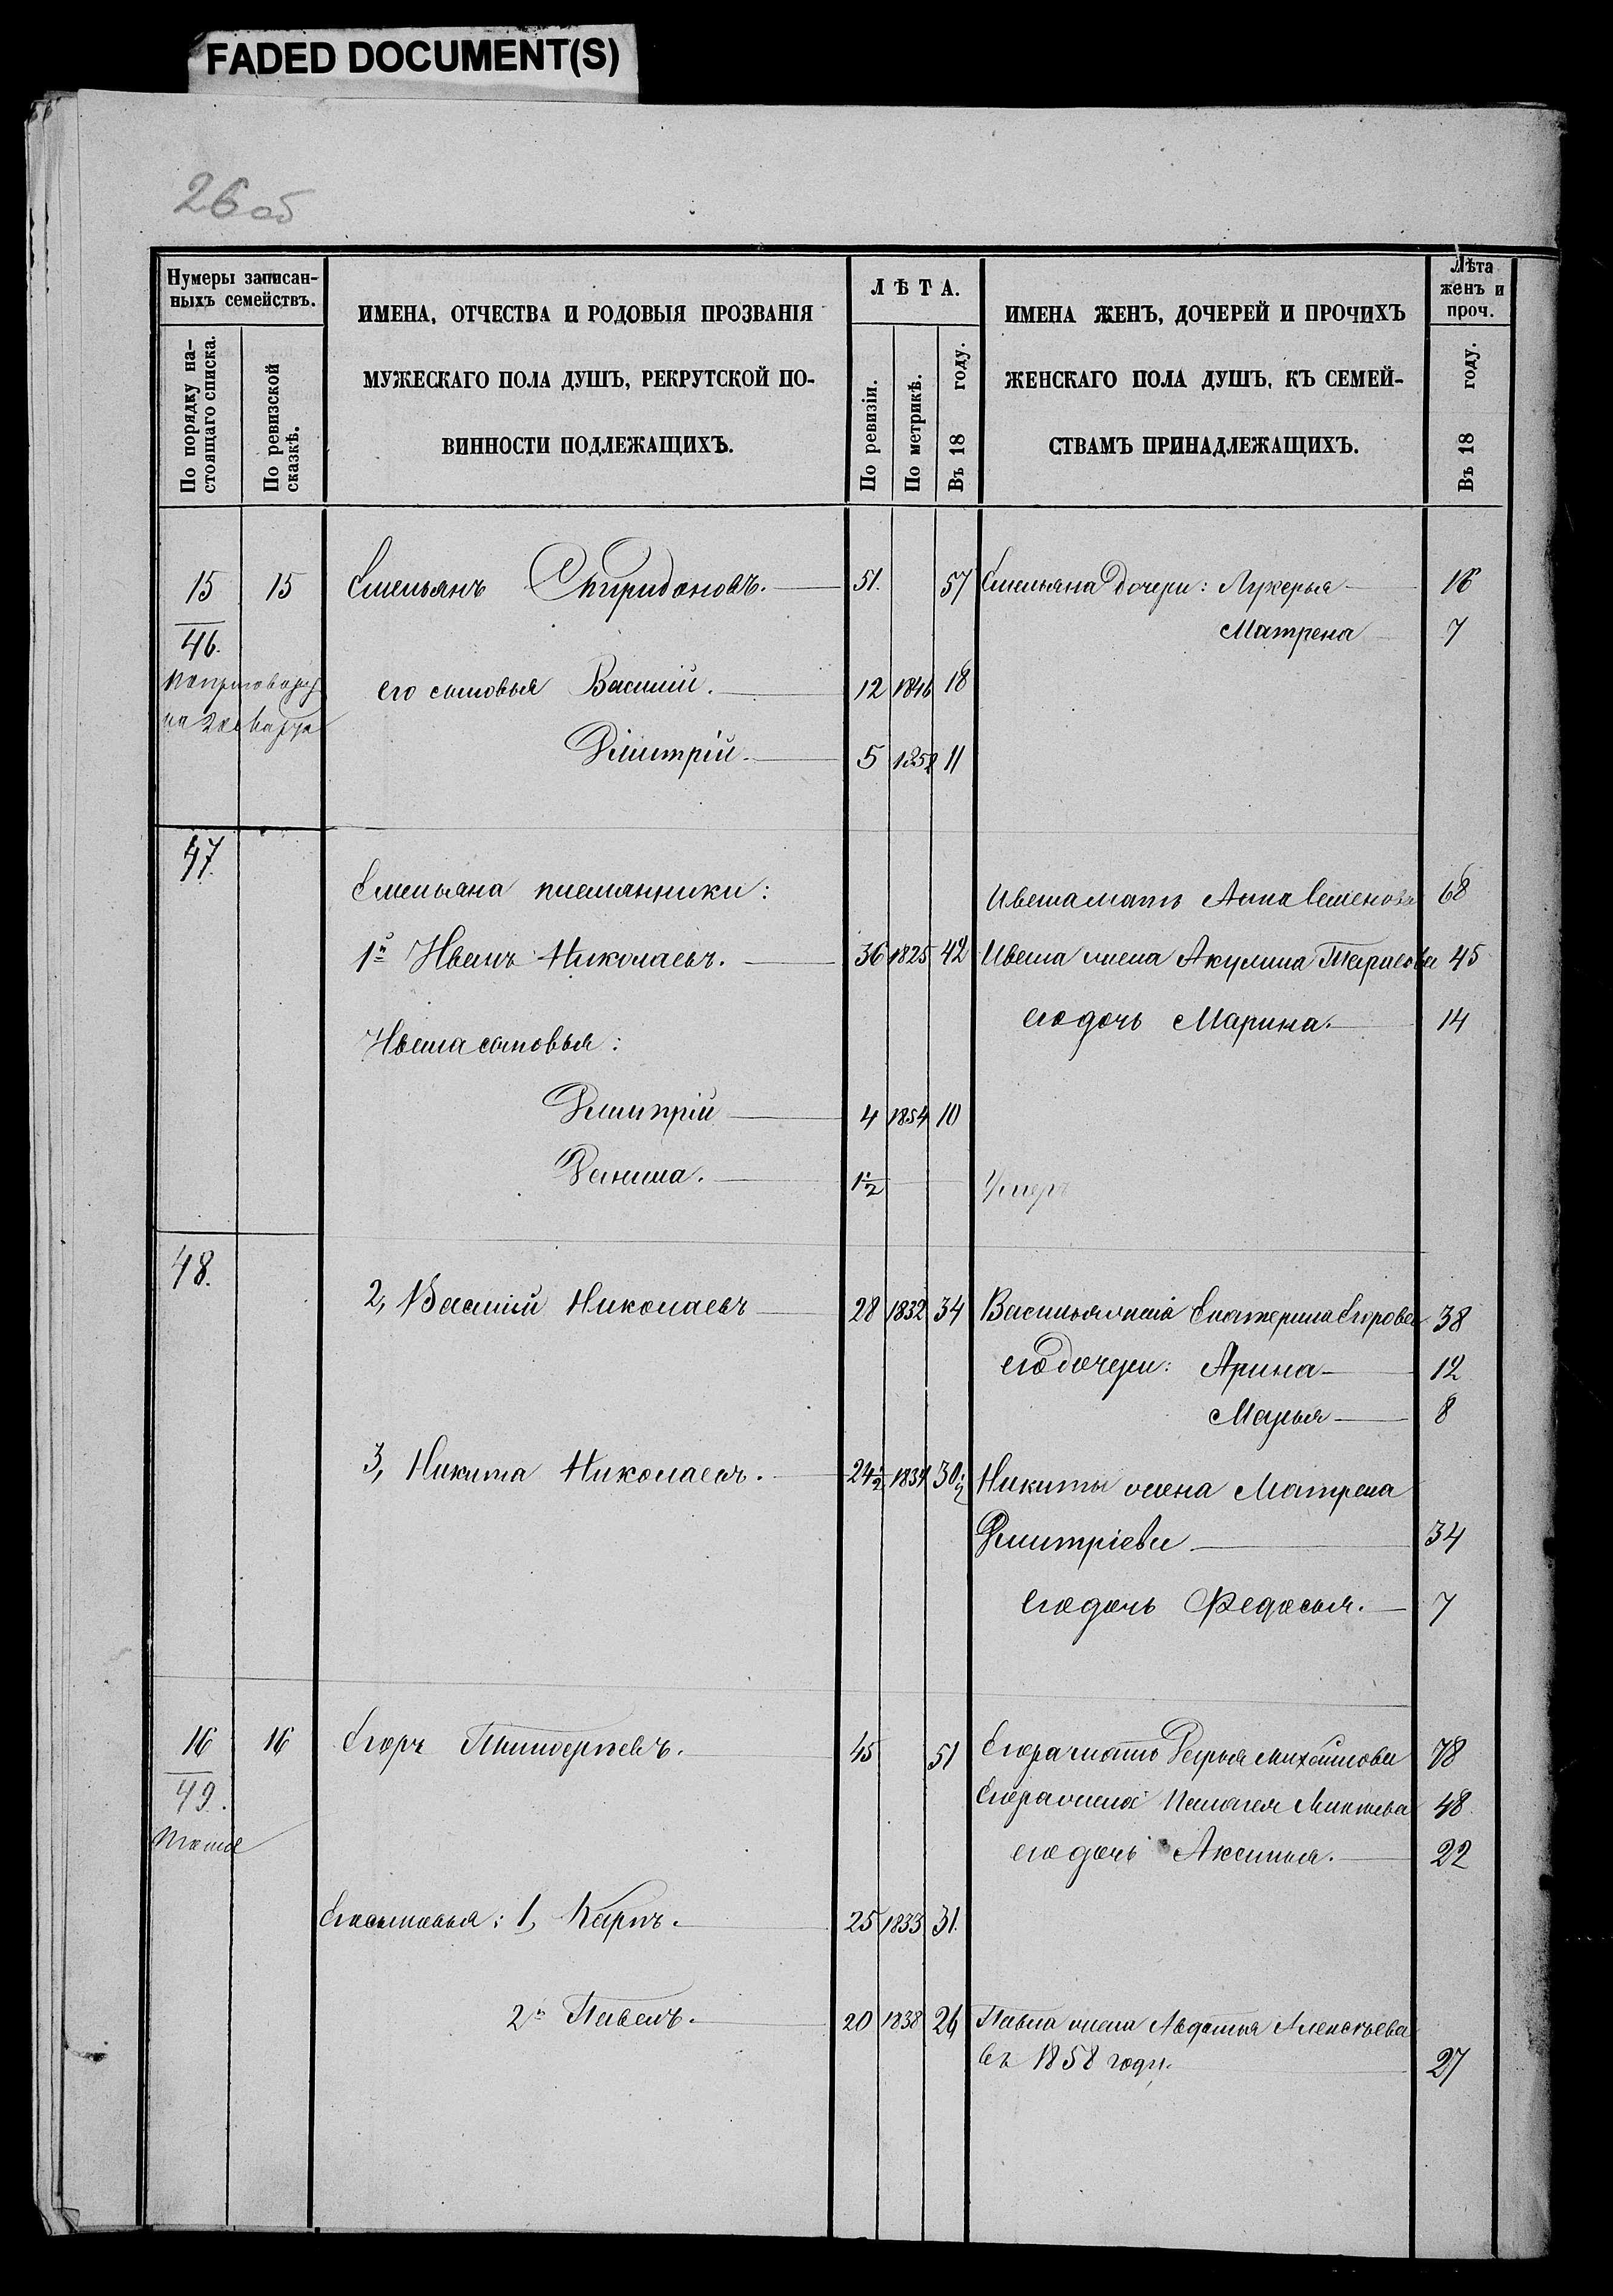 FADED DOCUMENT(S)
26 об
Нумеры записан-
ныхъ семействъ.
По порядку на-
стоящаго списка.
По ревизской
сказкѣ.
ИМЕНА, ОТЧЕСТВА И РОДОВЫЯ ПРОЗВАНІЯ
МУЖЕСКАГО ПОЛА ДУШЪ, РЕКРУТСКОЙ ПО-
ВИННОСТИ ПОДЛЕЖАЩИХЪ.
ЛѢТА.
По ревизіи.
По метрикѣ.
Въ 18 году.
ИМЕНА ЖЕНЪ, ДОЧЕРЕЙ И ПРОЧИХЪ
ЖЕНСКАГО ПОЛА ДУШЪ, КЪ СЕМЕЙ-
СТВАМЪ ПРИНАДЛЕЖАЩИХЪ.
Лѣта
женъ и
проч.
Въ 18 году.
15 15 Емельянъ Спиридоновъ. 51. 57 Емельяна дочери: Лукерья 16
46. Матрена 7
по приговору
на
его сыновья Василій. 12 1846 18
Дмитрій. 5 1852 11
47.
Емельяна племянники: Ивана мать Анна Семенова 68
1й Иванъ Николаевъ. 36 1825 42 Ивана жена Акулина Тарасова 45
его дочь Марина. 14
Ивана сыновья:
Дмитрій 4 1854 10
Данила. 1½ Умеръ
48.
2, Василій Николаевъ 28 1832 34 Василья жена Екатерина Егорова 38
его дочери: Арина 12
Марья 8
3, Никита Николаевъ. 24½ 1834 30½ Никиты жена Матрена
Дмитріева 34
его дочь Федосья. 7
16 16 Егоръ Тимоѳеевъ. 45 51 Егора мать Дарья Михайлова 78
49. Егора жена Пелагея 48
тоже его дочь Аксинья. 22
Его сыновья: 1, Карпъ. 25 1833 31.
2й Павелъ. 20 1838 26 Павла жена Авдотья Алексѣева
въ 1858 году. 27